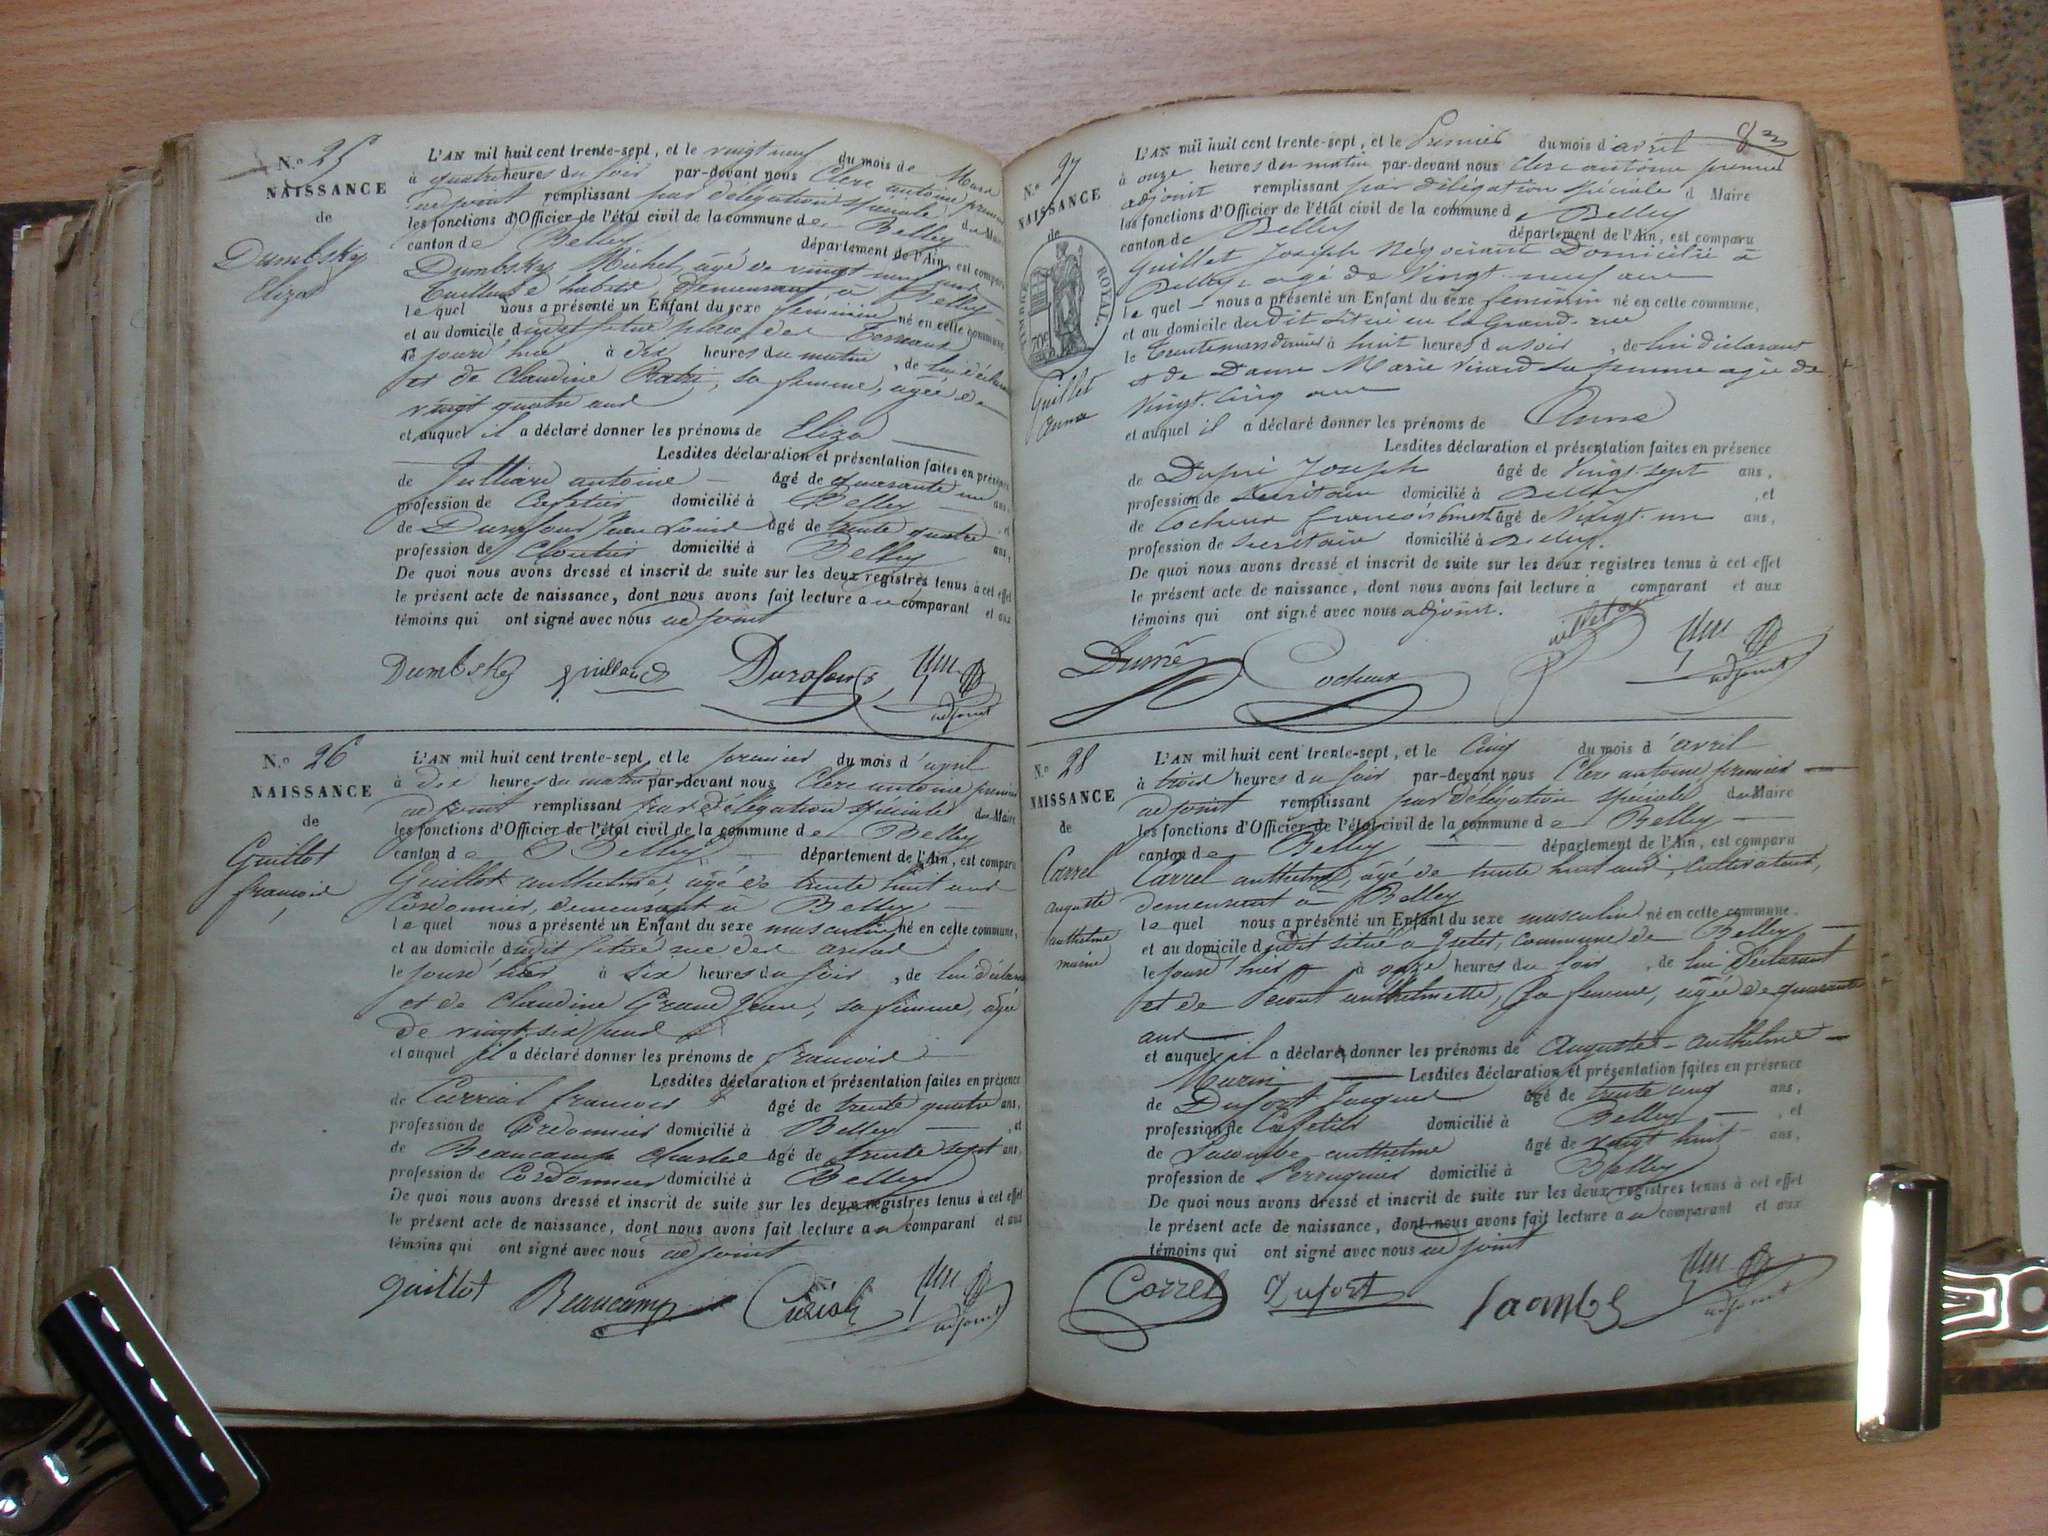 N.º 25
NAISSANCE
de
Dumbsky
Eliza
L'AN mil huit cent trente-sept, et le vingt neuf du mois de Mars
à quatre heures du soir par-devant nous Clerc antoine premier
adjoint remplissant par délégation spéciale du Maire
les fonctions d'Officier de l'état civil de la commune de Belley
canton de Belley département de l'Ain, est comparu
Dumbsky Michel, âgé de vingt neuf ans
Tailleur d'habits, demeurant à Belley
lequel nous a présenté un Enfant du sexe féminin né en cette commune,
et au domicile dudit situé place des Terreaux
le jourd'hui à dix heures du matin, de lui déclarant
et de Claudine sa femme, agée de
vingt quatre ans
et auquel il a déclaré donner les prénoms de Eliza
Lesdites déclaration et présentation faites en présence
de Julliard antoine âgé de quarante un ans,
profession de Cafetier domicilié à Belley, et
de Durafour Jean Louis âgé de trente quatre ans,
profession de Cloutier domicilié à Belley
De quoi nous avons dressé et inscrit de suite sur les deux registres tenus à cet effet
le présent acte de naissance, dont nous avons fait lecture au comparant et aux
témoins qui ont signé avec nous adjoint
Dumbsky Julliard Durafour
adjoint
N.º 26
NAISSANCE
de
Guillot
françois
L'AN mil huit cent trente-sept, et le premier du mois d'avril
à dix heures du matin par-devant nous Clerc antoine premier
adjoint remplissant par délégation spéciale du Maire
les fonctions d'Officier de l'état civil de la commune de Belley
canton de Belley département de l'Ain, est comparu
Guillot anthelme, âgé de trente huit ans
Cordonnier, demeurant à Belley
lequel nous a présenté un Enfant du sexe masculin né en cette commune,
et au domicile dudit situé rue des
le jour d'hier à six heures du soir, de lui déclarant
et de Claudine Grand Jean, sa femme, agée
de vingt six ans
et auquel il a déclaré donner les prénoms de françois
Lesdites déclaration et présentation faites en présence
de Curial françois âgé de trente quatre ans,
profession de Cordonnier domicilié à Belley, et
de Beaucamp Charles âgé de trente sept ans,
profession de Cordonnier domicilié à Belley
De quoi nous avons dressé et inscrit de suite sur les deux registres tenus à cet effet
le présent acte de naissance, dont nous avons fait lecture au comparant et aux
témoins qui ont signé avec nous adjoint
guillot Beaucamp Curial
adjoint
N.º 27
NAISSANCE
de
TIMBRE ROYAL.
70c
Guillet
Anna
L'AN mil huit cent trente-sept, et le Premier du mois d'avril
à onze heures du matin par-devant nous Clerc antoine premier
adjoint remplissant par délégation spéciale d Maire
les fonctions d'Officier de l'état civil de la commune de Belley
canton de Belley département de l'Ain, est comparu
Guillet Joseph Négociant Domicilié à
Belley, agé de vingt neuf ans
lequel nous a présenté un Enfant du sexe féminin né en cette commune,
et au domicile dudit situé en la Grand rue
le Trente mars dernier à huit heures du soir, de lui déclarant
et de Dame Marie sa femme agée de
vingt cinq ans
et auquel il a déclaré donner les prénoms de Anna
Lesdites déclaration et présentation faites en présence
de Joseph âgé de vingt sept ans,
profession de secrétaire domicilié à Belley, et
de Cocheux françois âgé de vingt un ans,
profession de secrétaire domicilié à Belley.
De quoi nous avons dressé et inscrit de suite sur les deux registres tenus à cet effet
le présent acte de naissance, dont nous avons fait lecture à comparant et aux
témoins qui ont signé avec nous adjoint.
Cocheux
adjoint
N.º 28
NAISSANCE
de
Carrel
auguste
anthelme
marin
L'AN mil huit cent trente-sept, et le Cinq du mois d'avril
à trois heures du soir par-devant nous Clerc antoine premier
adjoint remplissant par délégation spéciale du Maire
les fonctions d'Officier de l'état civil de la commune de Belley
canton de Belley département de l'Ain, est comparu
Carrel anthelme, âgé de trente huit ans, cultivateur,
demeurant à Belley
lequel nous a présenté un Enfant du sexe masculin né en cette commune,
et au domicile dudit situé à commune de Belley
le jour d'hier à onze heures du soir, de lui déclarant
et de anthelmette, sa femme, agée de quarante
ans
et auquel il a déclaré donner les prénoms de Auguste anthelme
Marin Lesdites déclaration et présentation faites en présence
de Dufort Jacques âgé de trente cinq ans,
profession de Cafetier domicilié à Belley, et
de Lacombe anthelme âgé de vingt huit ans,
profession de Perruquier domicilié à Belley
De quoi nous avons dressé et inscrit de suite sur les deux registres tenus à cet effet
le présent acte de naissance, dont nous avons fait lecture au comparant et aux
témoins qui ont signé avec nous adjoint
Correl Dufort
adjoint